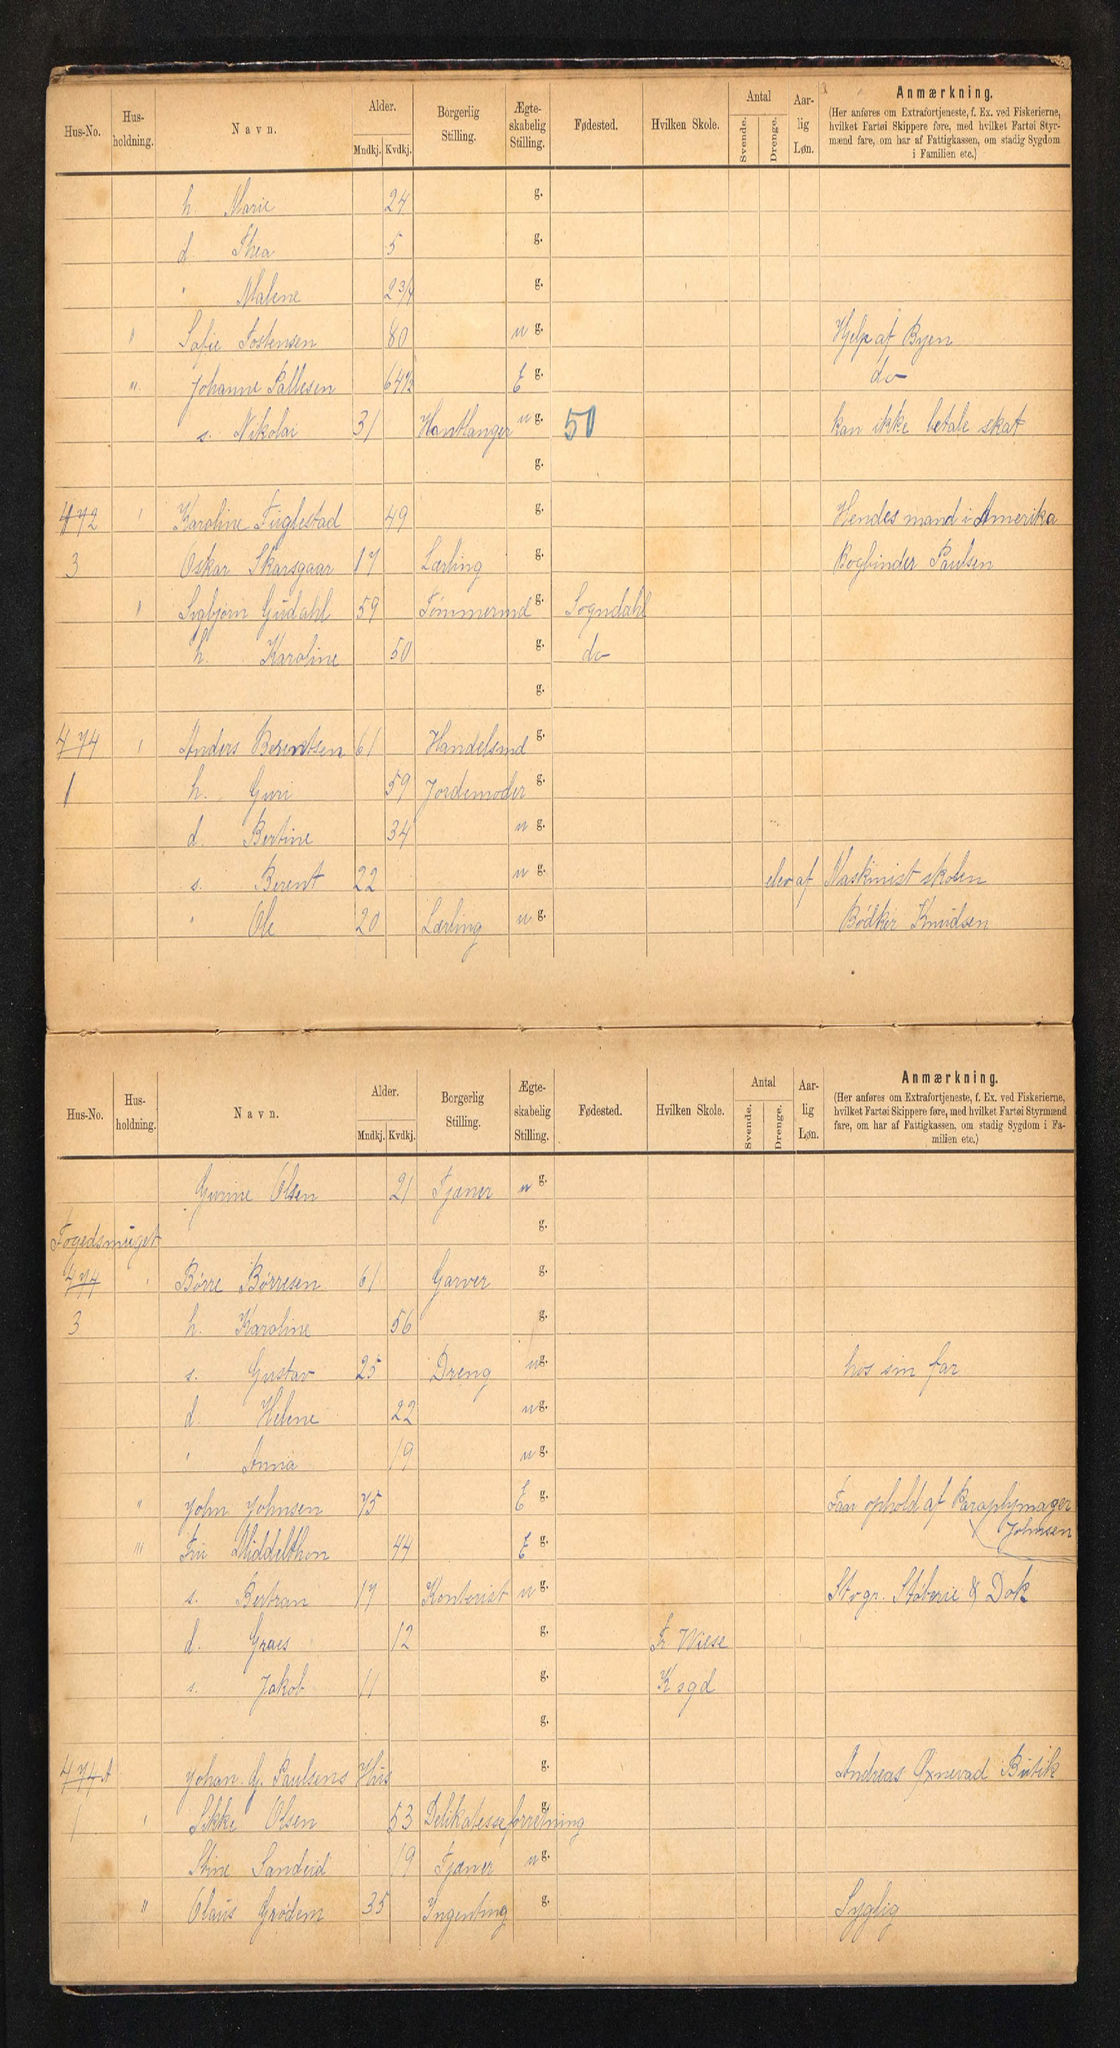 Hus-No. Hus-holdning. Navn. Alder. Mndkj. Kvdkj. Borgerlig Stilling. Ægte-skabelig Stilling. Fødested. Hvilken Skole. Antal Svende. Drenge. Aar-lig Løn. Anmærkning.
(Her anføres om Extrafortjeneste, f. Ex. ved Fiskerierne, hvilket Fartøi Skippere føre, med hvilket Fartøi Styrmænd fare, om har af Fattigkassen, om stadig Sygdom i Familien etc.)
h. Marie 24 g.
d Thea 5 g.
" Malene 2 3/4 g.
" Sofie Tostensen 80 u g. Hjelp af Byen
"' Johanne Pallesen 64 1/2 E g. do
s. Nikolai 31 Hantlanger u g. 50 kan ikke betale skat
g.
472 ' Karoline Fuglestad 49 g. Hendes mand i Amerika
3 Oskar Skarsgaar 17 Lærling g. Bogbinder Paulsen
" Sigbjørn Gudahl 59 Tømmermd g. Sogndahl
h. Karoline 50 g. do
g.
474 ' Anders Berentsen 61 Handelsmd g.
1 h. Guri 59 Jordemoder g.
d. Bertine 34 u g.
s. Berent 22 u g. elev af Maskinist skolen
" Ole 20 Lærling u g. Bødker Knudsen
Hus-No. Hus-holdning. Navn. Alder. Mndkj. Kvdkj. Borgerlig Stilling. Ægte-skabelig Stilling. Fødested. Hvilken Skole. Antal Svende. Drenge. Aar-lig Løn. Anmærkning.
(Her anføres om Extrafortjeneste, f. Ex. ved Fiskerierne, hvilket Fartøi Skippere føre, med hvilket Fartøi Styrmænd fare, om har af Fattigkassen, om stadig Sygdom i Familien etc.)
Gurine Olsen 21 Tjener u g.
Fogedsmuget g.
474 ' Børre Børresen 61 Garver g.
3 h. Karoline 56 g.
s. Gustav 25 Dreng u g. hos sin far
d. Helene 22 u g.
' Anna 19 u g.
" John Johnsen 75 E g. Faar ophold af Paraplymager Johnsen
"' Fru Middelthon 44 E g.
s. Bertran 17 Kontorist u g. Stvgr. Støberie & Dok
d. Graes 12 g. Fr Wiese
s. Jakob 11 g. K sgd
g.
474 A Johan G. Paulsens Hus g. Andreas Øxnevad Butik
1 ' Sikke Olsen 53 Delikatesseforretning g.
Stine Sandeid 19 Tjener u g.
" Olaus Grødem 35 Ingenting g. Syglig